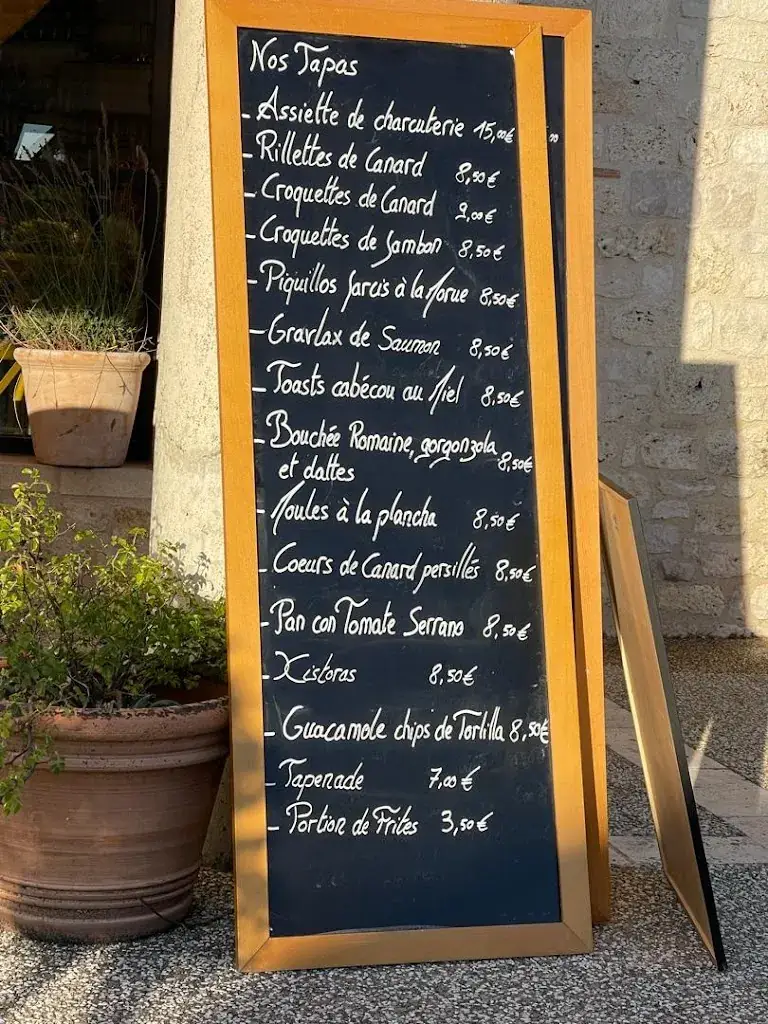 Nos Tapas
- Assiette de charcuterie 15,00€
- Rillettes de Canard 8,50€
- Croquettes de Canard 9,00€
- Croquettes de Jambon 8,50€
- Piquillos farcis à la Morue 8,50€
- Gravlax de Saumon 8,50€
- Toasts cabécou au Miel 8,50€
- Bouchée Romaine, gorgonzola 8,50€
et dattes
- Moules à la plancha 8,50€
- Coeurs de Canard persillés 8,50€
- Pan con Tomate Serrano 8,50€
- Xistoras 8,50€
- Guacamole chips de Tortilla 8,50€
- Tapenade 7,00€
- Portion de Frites 3,50€